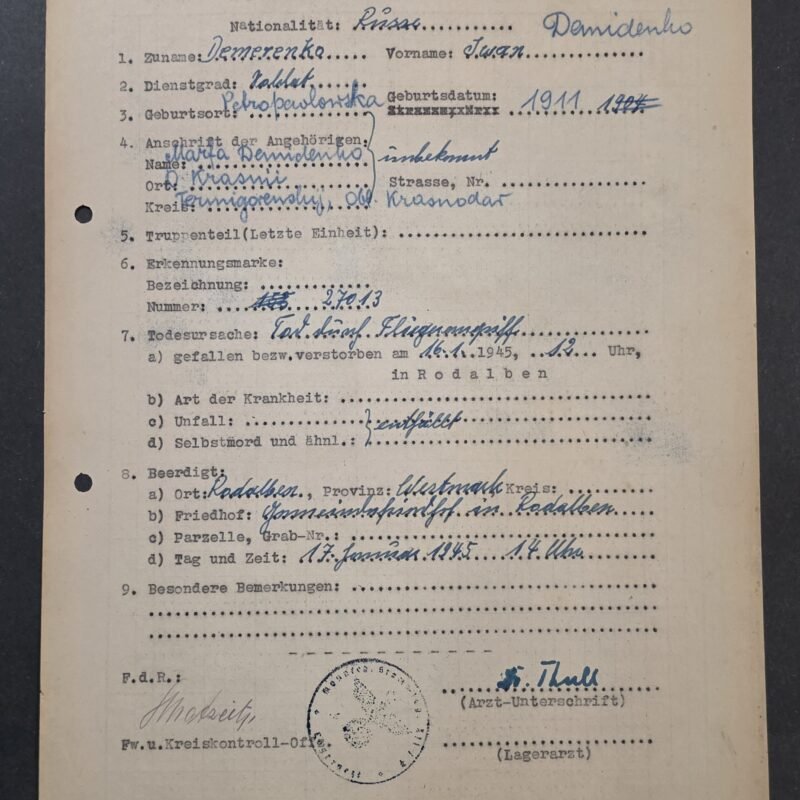 Nationalität: Russe
Demidenko
1. Zuname: Demerenko Vorname: Iwan
2. Dienstgrad: Soldat
3. Geburtsort: Petropawlowska Geburtsdatum: 1911 1904
4. Anschrift der Angehörigen:
Name: Marfa Demidenko unbekannt
Ort: D. Krasnii Strasse, Nr.
Kreis: Temigorensky, Obl. Krasnodar
5. Truppenteil (Letzte Einheit):
6. Erkennungsmarke:
Bezeichnung:
Nummer: 27013
7. Todesursache: Tod durch Fliegerangriff
a) gefallen bezw. verstorben am 16.1. 1945, 12 Uhr,
in Rodalben
b) Art der Krankheit:
c) Unfall: entfällt
d) Selbstmord und ähnl.:
8. Beerdigt:
a) Ort: Rodalben, Provinz: Westmark Kreis:
b) Friedhof: Gemeindefriedhof in Rodalben
c) Parzelle, Grab-Nr.:
d) Tag und Zeit: 17. Januar 1945 14 Uhr
9. Besondere Bemerkungen:
F.d.R.:
Dr. Thull
(Arzt-Unterschrift)
Fw.u.Kreiskontroll-Off
(Lagerarzt)